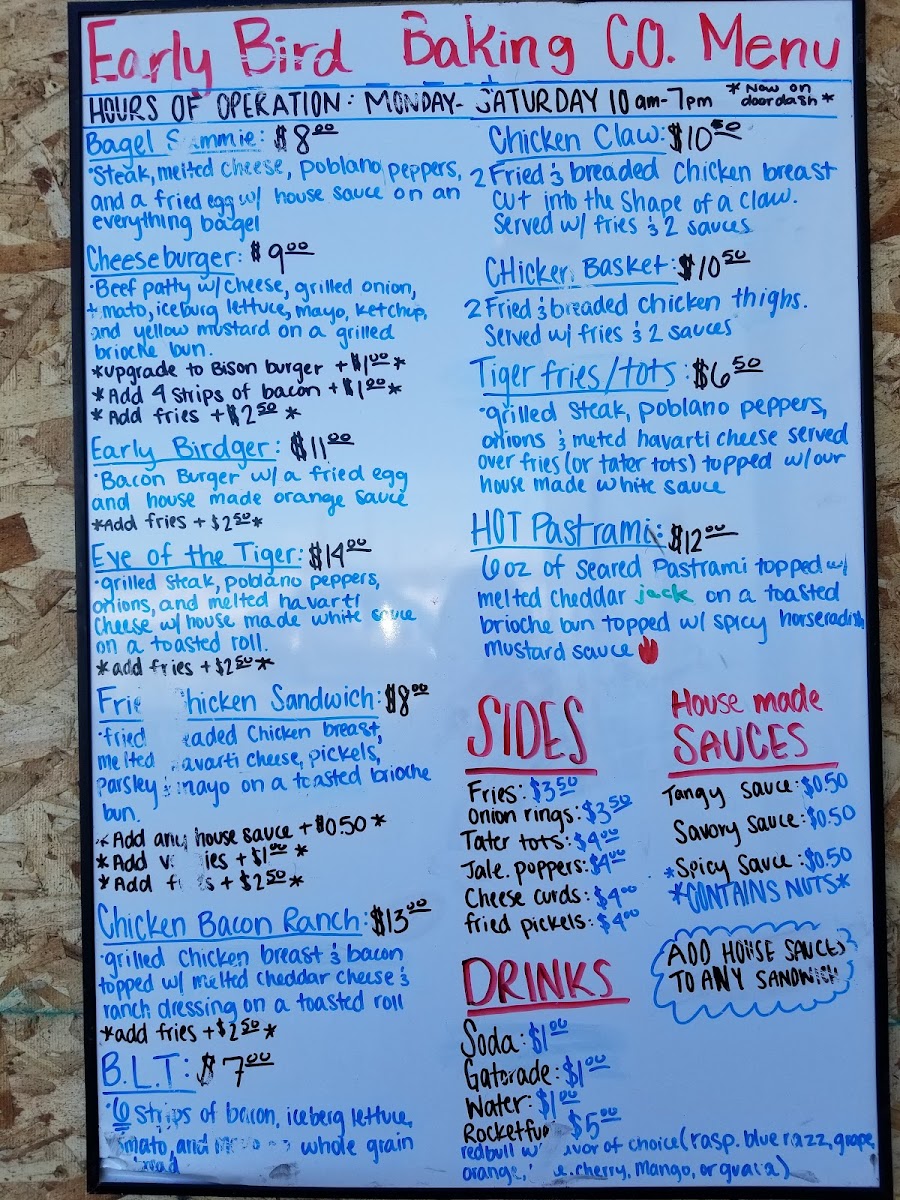 Early Bird Baking CO. Menu
HOURS OF OPERATION: MONDAY- SATURDAY 10 am-7pm *Now on doordash*
Bagel S mmie: $8.00
·Steak, melted cheese, poblano peppers,
and a fried egg w/ house sauce on an
everything bagel
Cheeseburger: $9.00
·Beef patty w/cheese, grilled onion,
t mato, iceburg lettuce, mayo, ketchup,
and yellow mustard on a grilled
brioche bun.
*upgrade to Bison burger +$1.00*
*Add 4 strips of bacon +$1.00*
*Add fries +$2.50*
Early Birdger: $11.00
·Bacon Burger w/a fried egg
and house made orange sauce
*Add fries +$2.50*
Eye of the Tiger: $14.00
·grilled steak, poblano peppers,
onions, and melted havarti
cheese w/house made white sauce
on a toasted roll.
*add fries +$2.50*
Frie hicken Sandwich: $8.00
·fried eaded Chicken breast,
melted avarti cheese, pickels,
parsley & mayo on a toasted brioche
bun.
*Add any house sauce +$0.50*
*Add v ies +$1.00*
*Add f s +$2.50*
Chicken Bacon Ranch: $13.00
·grilled chicken breast & bacon
topped w/ melted cheddar cheese &
ranch dressing on a toasted roll
*add fries +$2.50*
B.L.T: $7.00
·6 strips of bacon, iceberg lettuce,
mato, and whole grain
read
Chicken Claw: $10.50
2 Fried & breaded Chicken breast
cut into the shape of a claw.
Served w/ fries & 2 sauces
CHicken Basket: $10.50
2 Fried & breaded chicken thighs.
Served w/ fries & 2 sauces
Tiger fries/tots: $6.50
·grilled steak, poblano peppers,
onions & meted havarti cheese served
over fries (or tater tots) topped w/our
house made white sauce
HOT Pastrami: $12.00
6 oz of seared Pastrami topped w/
melted cheddar jack on a toasted
brioche bun topped w/ spicy horseradish
mustard sauce
SIDES
Fries: $3.50
Onion rings: $3.50
Tater tots: $4.00
Jale. poppers: $4.00
Cheese curds: $4.00
fried pickels: $4.00
House made
SAUCES
Tangy Sauce: $0.50
Savory Sauce: $0.50
*Spicy Sauce: $0.50
*CONTAINS NUTS*
ADD HOUSE SAUCES
TO ANY SANDWICH
DRINKS
Soda: $1.00
Gatorade: $1.00
Water: $1.00
Rocketfu $5.00
redbull w/ avor of choice (rasp. blue razz, grape,
orange, e.cherry, mango, or guava)